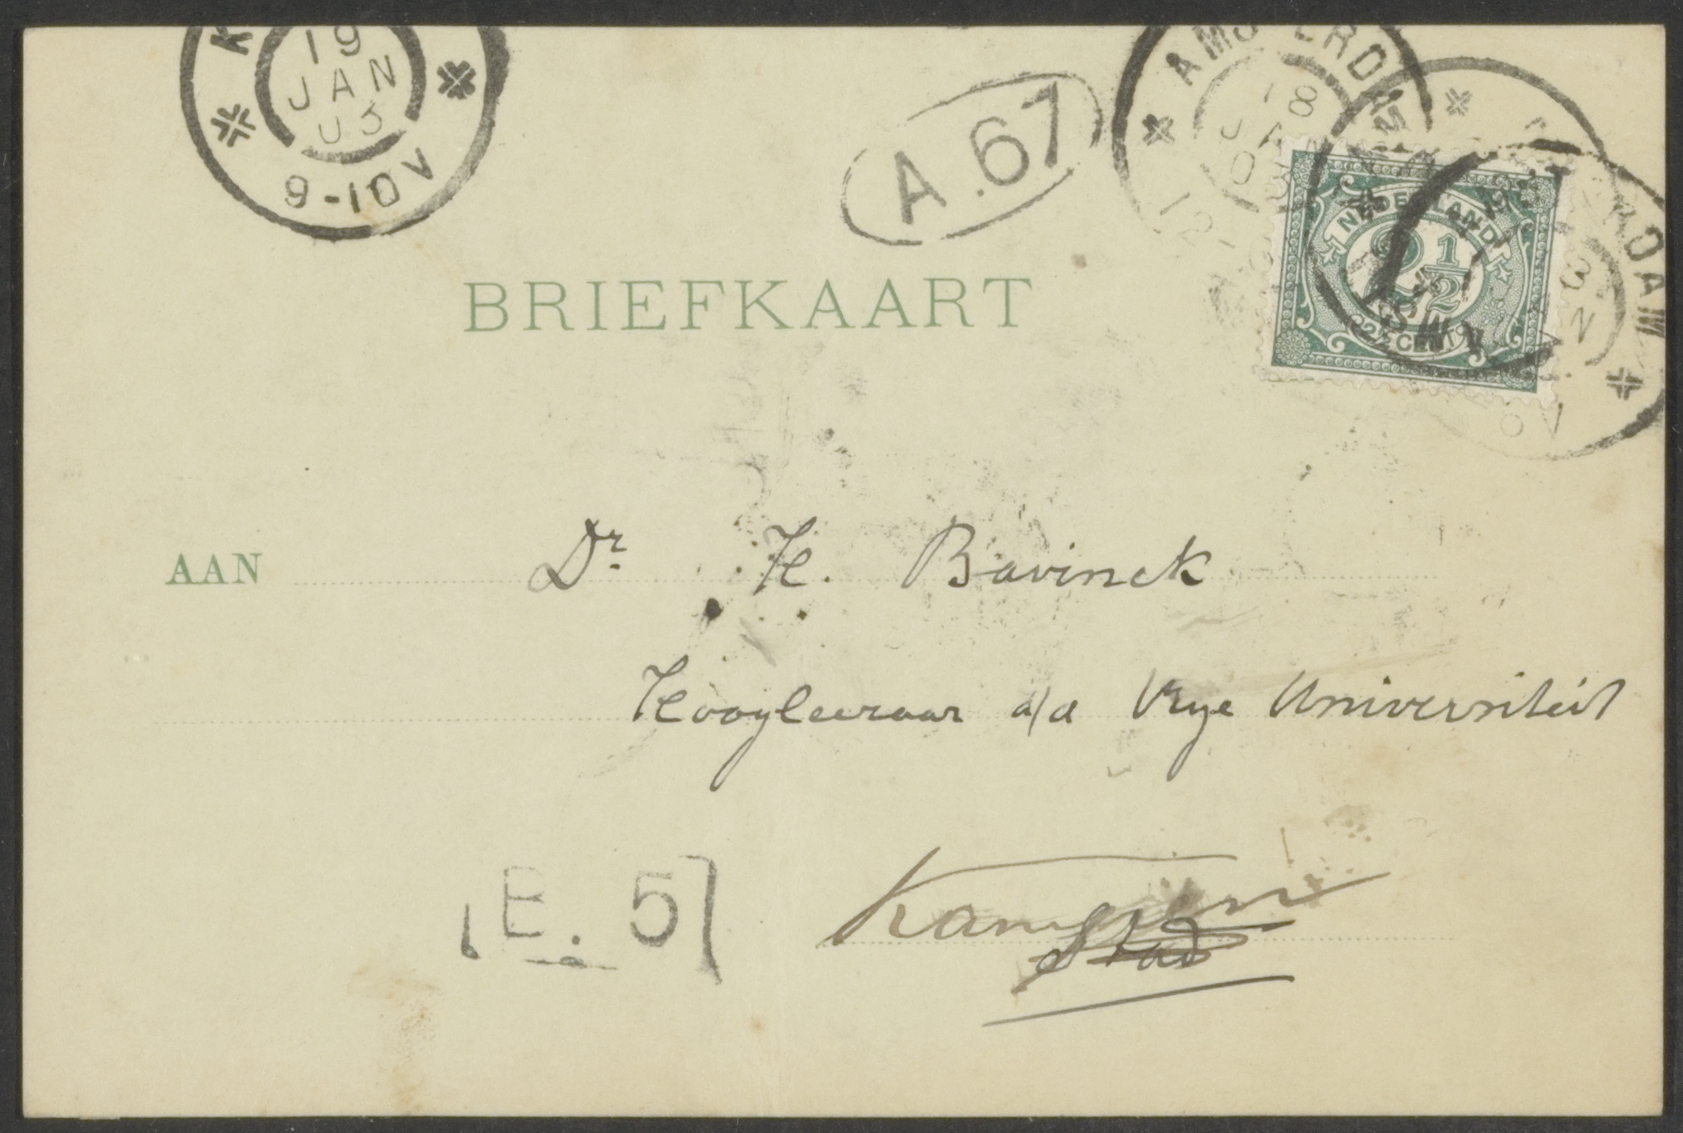 K
19
JAN
03
9-10V
A.67
AMSTERDAM
18
JAN
03
12-
NEDERLAND
2½
2½ CENT
BRIEFKAART
AAN Dr. H. Bavinck
Hoogleeraar a/d Vrye Universiteit
E. 5
Kampen
Stad